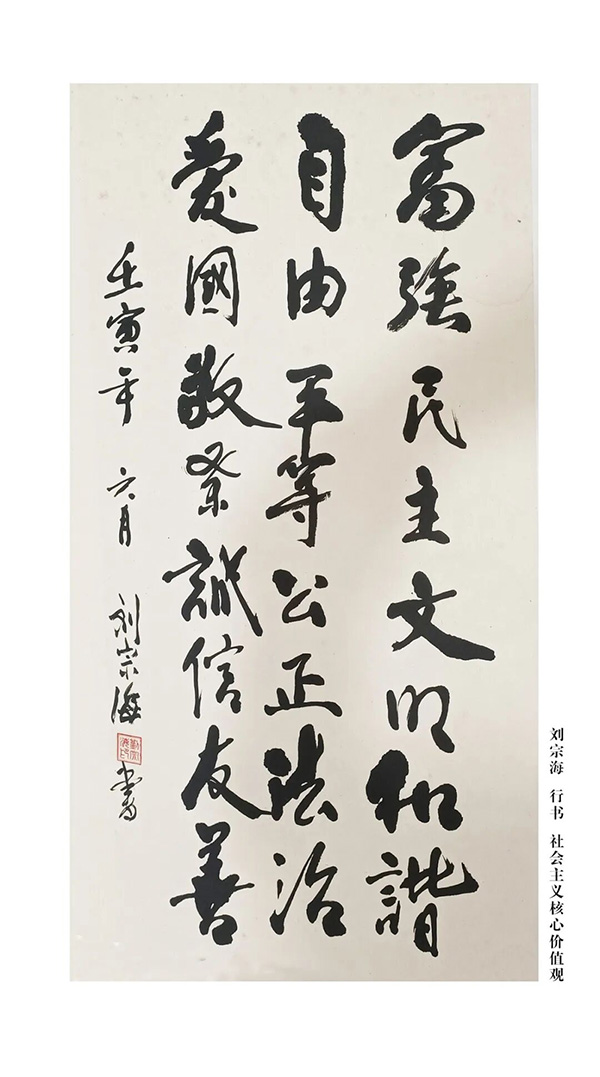 富強民主文明和諧
自由平等公正法治
愛國敬業誠信友善
壬寅年 六月 刘宗海 書
刘宗海 行书 社会主义核心价值观